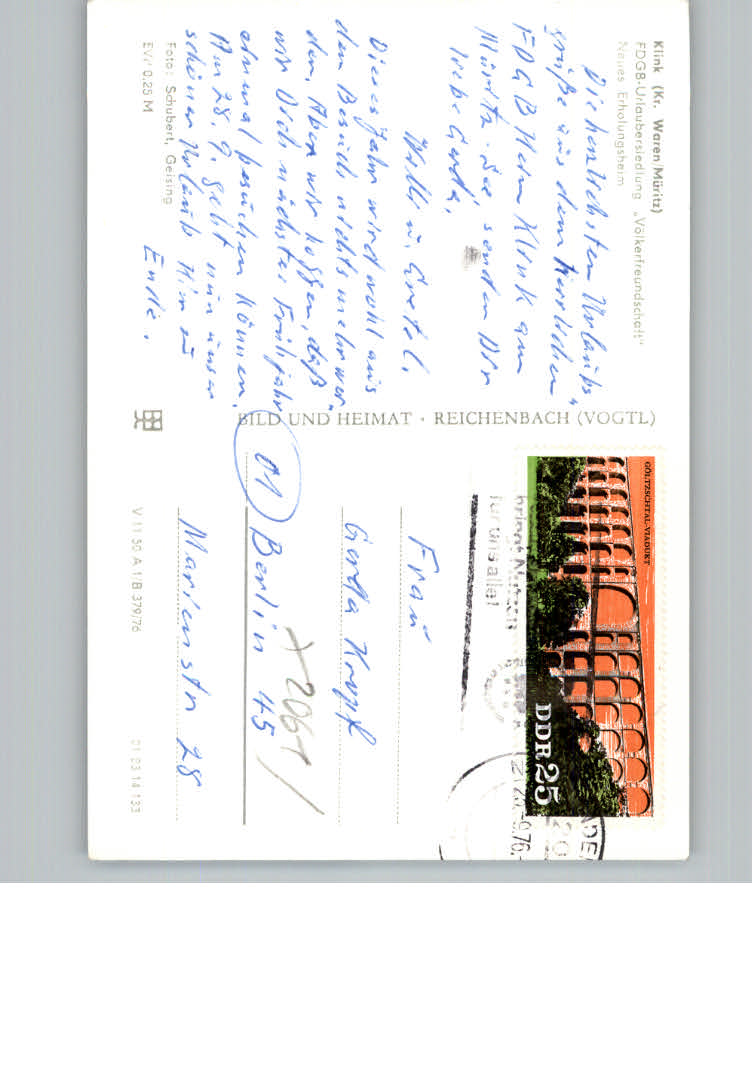 Klink (Kr. Waren/Müritz)
FDGB-Urlaubersiedlung „Völkerfreundschaft"
Neues Erholungsheim
Die herzlichsten Urlaubs„
grüße aus dem herrlichen
FDGB Heim Klink am
Müritz-See senden Dir
liebe Gerda,
Willi u. Gretel.
Dieses Jahr wird wohl aus
dem Besuch nichts mehr wer„
den. Aber wir hoffen, daß
wir Dich nächstes Frühjahr
einmal besuchen können.
Am 28. 9. geht nun unser
schöner Urlaub hier zu
Ende.
Foto: Schubert, Geising
EVP 0,25 M
BILD UND HEIMAT · REICHENBACH (VOGTL)
GÖLTZSCHTAL-VIADUKT
DDR 25
bringt Nutzen
für uns alle!
9.76.
20
Frau
Gerda Kropf
01 Berlin 45
206
Marienstr 28
V 11 50 A 1/B 379/76
01 03 14 133